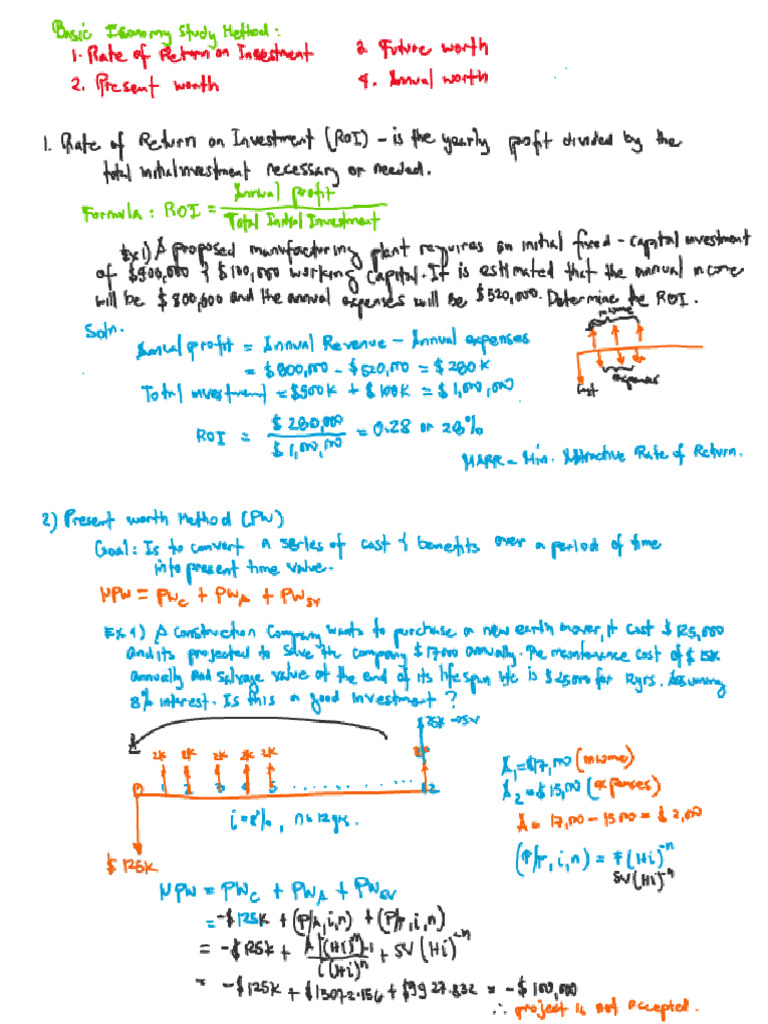 Basic Economy Study Method:
1. Rate of Return on Investment
3. Future worth
2. Present worth
4. Annual worth
1. Rate of Return on Investment (ROI) – is the yearly profit divided by the
total initial investment necessary or needed.
Formula: ROI = Annual profit / Total Initial Investment
Ex 1) A proposed manufacturing plant requires an initial fixed-capital investment
of $900,000 & $100,000 working capital. It is estimated that the annual income
will be $800,000 and the annual expenses will be $520,000. Determine the ROI.
Soln.
Annual profit = Annual Revenue – Annual expenses
= $800,000 – $520,000 = $280K
Total investment = $900K + $100K = $1,000,000
ROI = $280,000 / $1,000,000 = 0.28 or 28%
income
expenses
Cost
MARR – Min. Attractive Rate of Return.
2) Present worth Method (PW)
Goal: Is to convert a series of cost & benefits over a period of time
into present time value.
NPW = PWC + PWA + PWSV
Ex 1) A Construction Company wants to purchase a new earth mover, it cost $125,000
and its projected to save the company $17000 annually. The maintenance cost of $15K
annually and salvage value at the end of its life span is $25000 for 12yrs. Assuming
8% interest. Is this a good investment?
$25K → SV
A
2K 2K 2K 2K 2K 2K
0 1 2 3 4 5 ........ 12
i=8%, n=12yrs.
$125K
A1 = $17,000 (income)
A2 = $15,000 (expenses)
A = 17,000 – 15000 = $2,000
(P/F, i, n) = F(1+i)^-n
SV(1+i)^-n
NPW = PWC + PWA + PWSV
= -$125K + (P/A, i, n) + (P/F, i, n)
= -$125K + A[(1+i)^n - 1] / i(1+i)^n + SV(1+i)^-n
= -$125K + $15072.156 + $9927.832 = -$100,000
∴ project is not accepted.